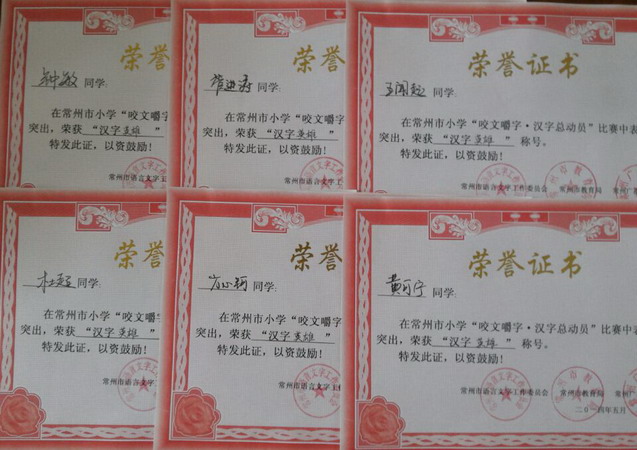 荣誉
钟敏 同学:
在常州市小学“咬文嚼字
突出，荣获 “汉字英雄 ”
特发此证，以资鼓励!
常州市语言文字工
荣誉
同学:
在常州市小学“咬文嚼字
突出，荣获 “汉字英雄 ”
特发此证，以资鼓励!
常州市语言文字工
荣誉证书
同学:
在常州市小学“咬文嚼字·汉字总动员”比赛中表
突出，荣获 “汉字英雄 ” 称号。
特发此证，以资鼓励!
常州市语言文字工作委员会 常州市教育局 常州广
荣誉
杜超 同学:
在常州市小学“咬文嚼字
突出，荣获 “汉字英雄 ”
特发此证，以资鼓励!
常州市语言文字工
荣誉
同学:
在常州市小学“咬文嚼字
突出，荣获 “汉字英雄 ”
特发此证，以资鼓励!
常州市语言文字工
荣誉证书
同学:
在常州市小学“咬文嚼字·汉字总动员”比赛中表
突出，荣获 “汉字英雄 ” 称号。
特发此证，以资鼓励!
常州市语言文字工作委员会 常州市教育局 常州广
二〇一四年五月